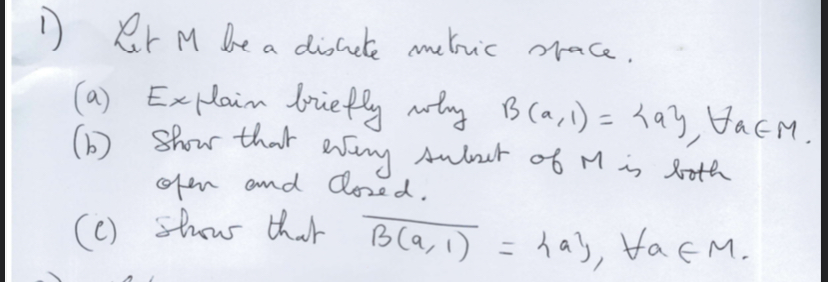 1) Let M be a discrete metric space.
(a) Explain briefly why B(a,1) = {a}, ∀a∈M.
(b) Show that every subset of M is both
open and closed.
(c) Show that \overline{B(a,1)} = {a}, ∀a∈M.